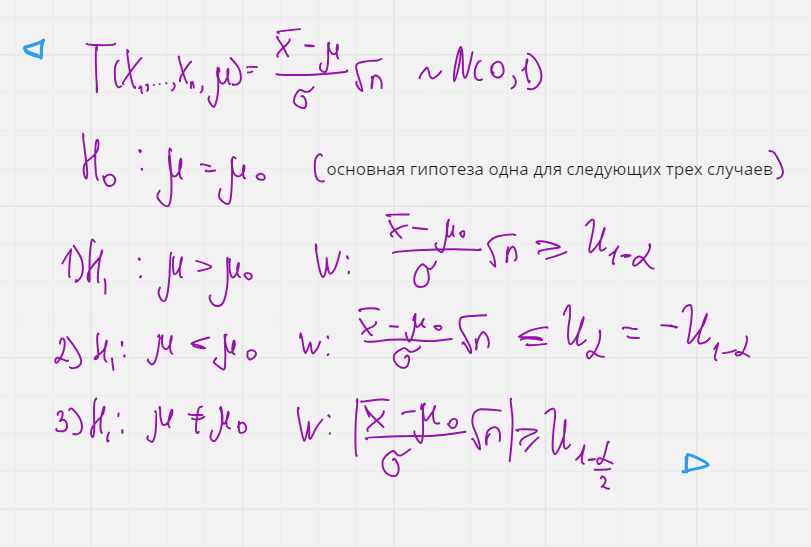 T(X₁,...,Xₙ, μ) = (x̄ - μ)/σ √n ~ N(0, 1)
H₀ : μ = μ₀ (основная гипотеза одна для следующих трех случаев)
1) H₁ : μ > μ₀ W: (x̄ - μ₀)/σ √n ⩾ u₁₋α
2) H₁: μ < μ₀ W: (x̄ - μ₀)/σ √n ⩽ u_α = -u₁₋α
3) H₁: μ ≠ μ₀ W: |(x̄ - μ₀)/σ √n| ⩾ u_{1-α/2}